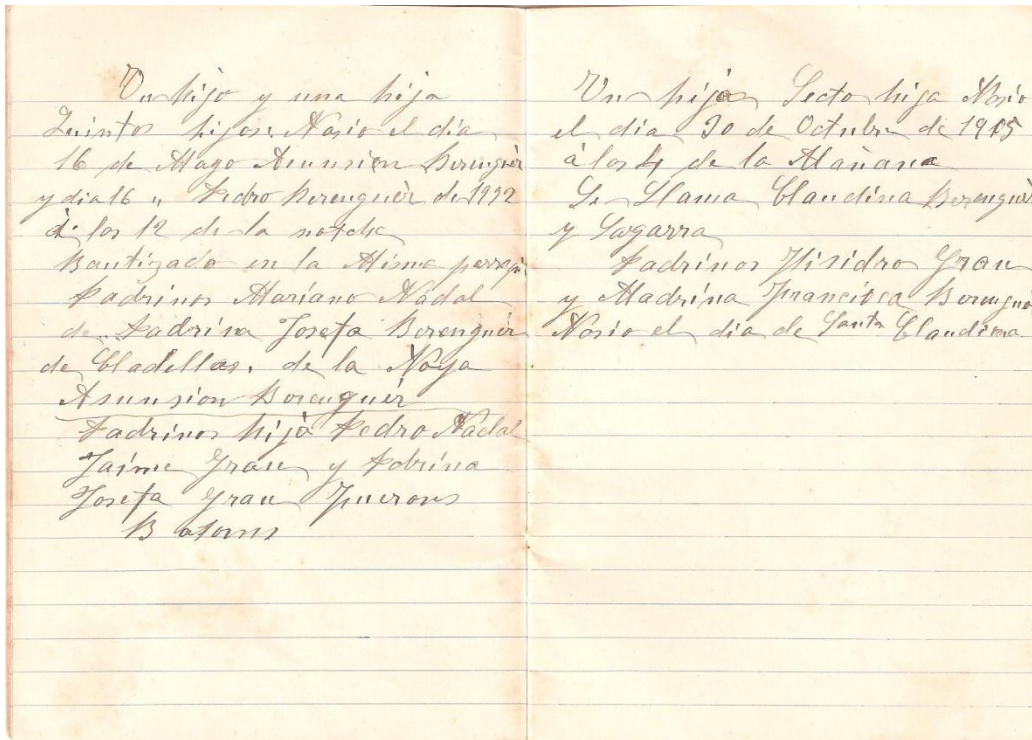 Un hijo y una hija
Quintos hijos. Nasio el dia
16 de Mayo Asunsion Berenguèr
y dia 16 " Pedro Berenguèr de 1912
à los 12 de la notche
Bautizado en la Misma
Padrinos Mariano Nadal
de Padrina Josefa Berenguèr
de Cladellas. de la Noya
Asunsion Berenguèr
Padrinos hijo Pedro Nadal
Jaime Grau y Pdrina
Josefa Grau
Batoms
Un hija Secto hija Nasio
el dia 30 de Octubre de 1915
à los 4 de la Mañana
Se Llama Claudina Berenguèr
y Sagarra
Padrinos Ysidro Grau
y Madrina Francisca Berenguè
Nasio el dia de Santa Claudina